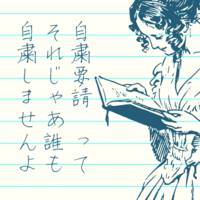 自粛要請　って
それじゃあ誰も
自粛しませんよ